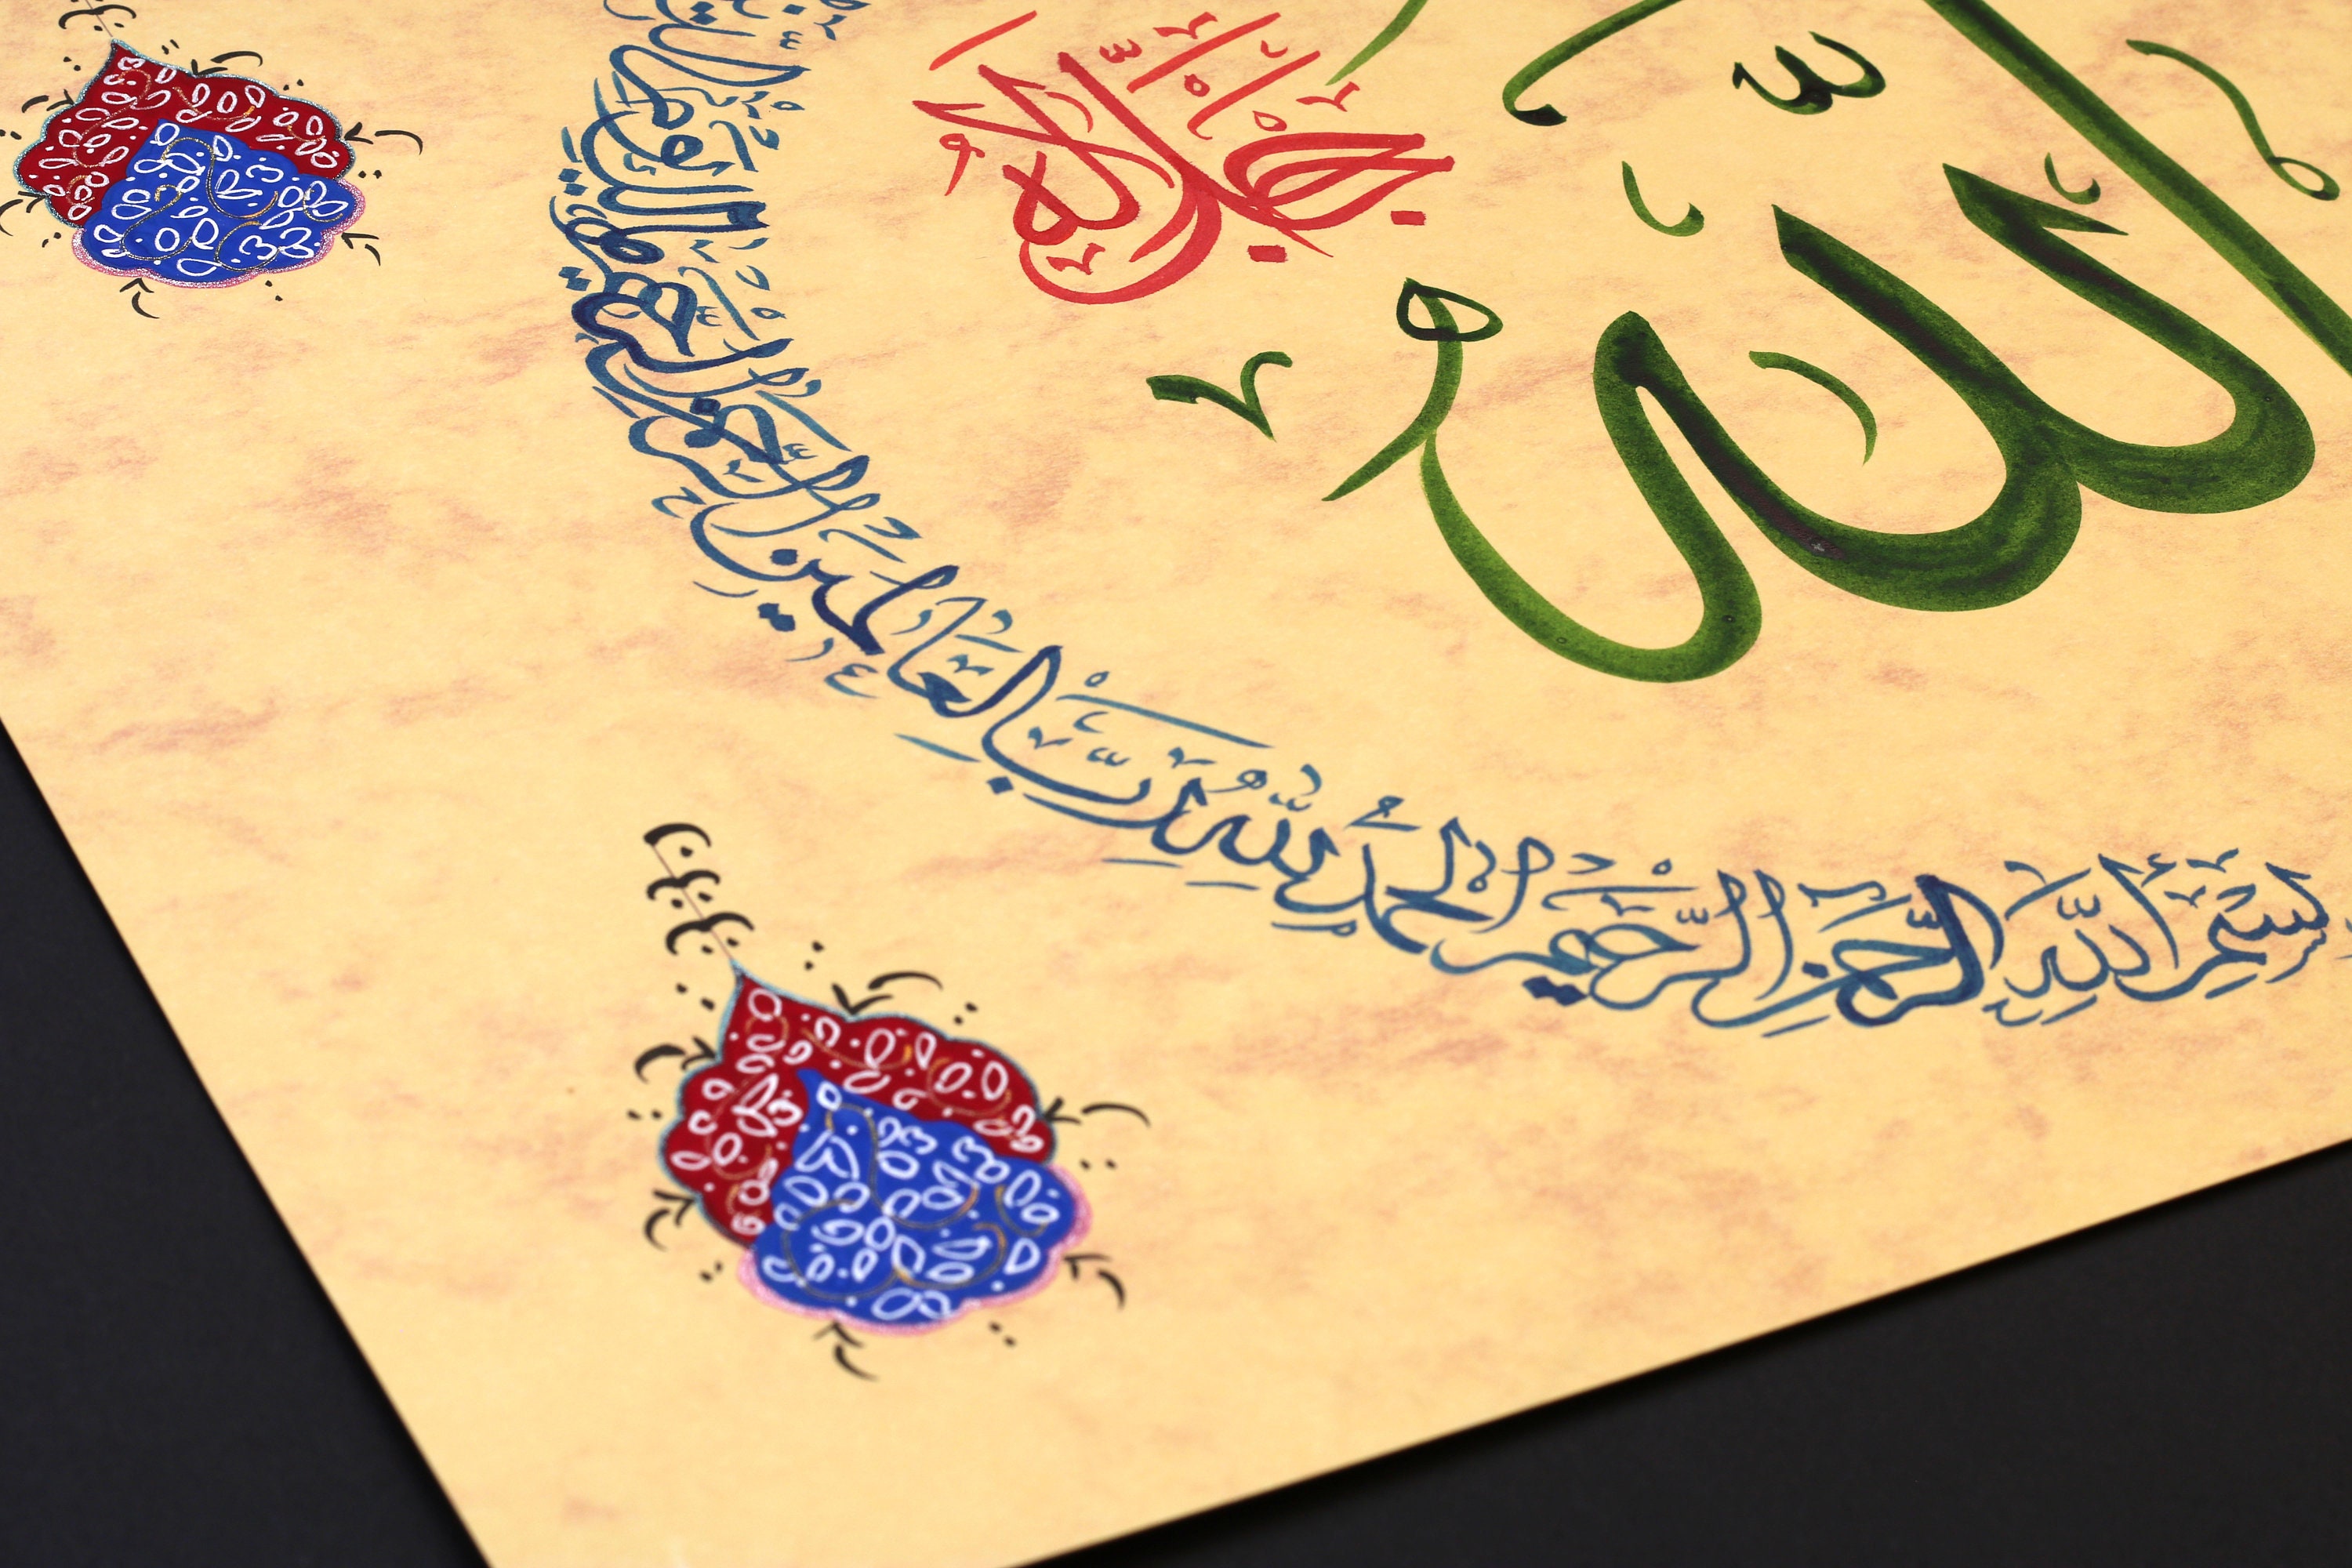 اللّٰه
جَلَّ جَلَالُهُ
بِسْمِ اللّٰهِ الرَّحْمٰنِ الرَّحِيمِ الْحَمْدُ لِلّٰهِ رَبِّ الْعَالَمِينَ الرَّحْمٰنِ الرَّحِيمِ مَالِكِ يَوْمِ الدِّينِ